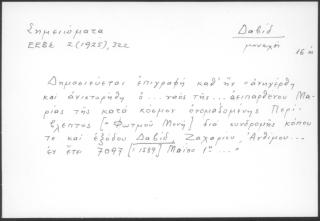 Σημειώματα
Δαβίδ
ΕΕΒΣ 2 (1925), 322
μοναχή
16 π
Δημοσιεύεται ἐπιγραφή καθ' ἥν "ἀνηγέρθη
καί ἀνιστορήθη ὁ ..ναός τῆς.. ἀειπαρθένου Μα-
ρίας τῆς κατά κόσμον ὀνομαζομένης Περι-
βλέπτος [= Φωτμοῦ Μονή] διά συνδρομῆς κόπου
τε καί ἐξόδου Δαβίδ, Ζαχαρίου, Ἀνθίμου...
ἐν ἔτει 7097 [= 1589] Μαΐου 1ῃ ..."